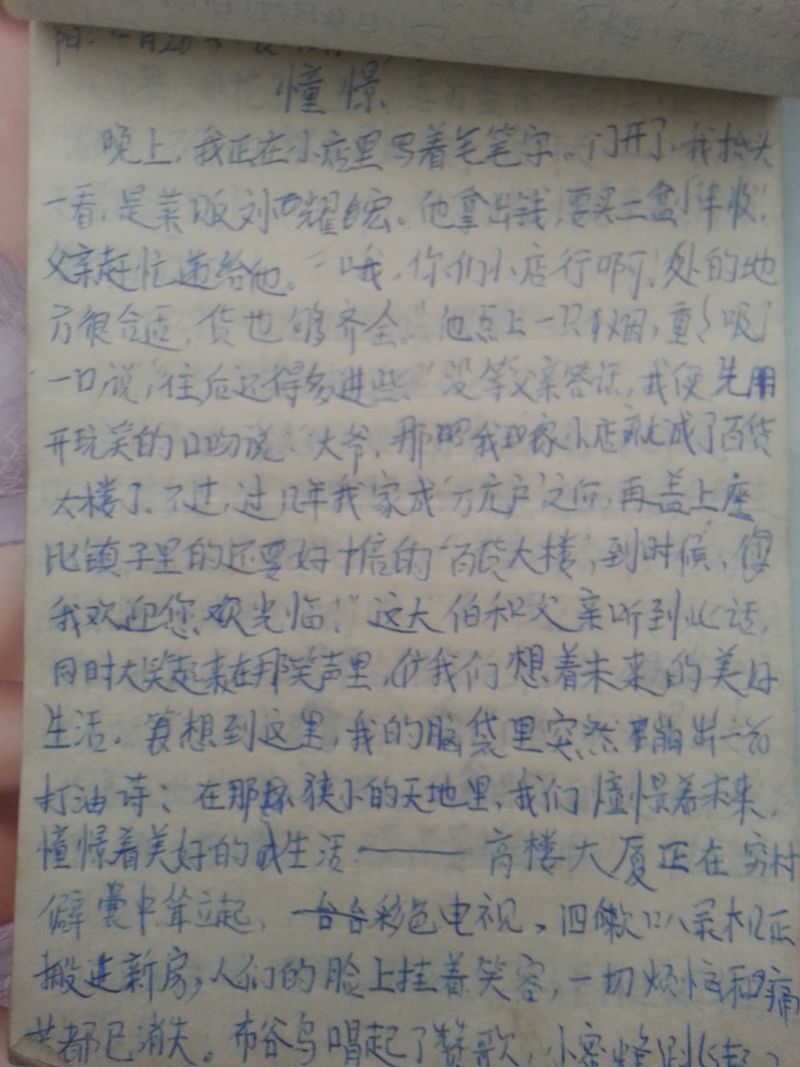 憧憬
晚上,我正在小店里写着毛笔字。门开了,我抬头
一看,是菜贩刘耀宏。他拿出钱要买二盒“丰收”,
父亲赶忙递给他。“哦,你们小店行啊!处的地
方很合适,货也够齐全。”他点上一只烟,重重吸
一口,说,“往后还得多进些。”没等父亲答话,我便先用
开玩笑的口吻说:“大爷,那吧我家小店就成了百货
大楼了。不过,过几年我家成“万元户”之后,再盖上座
比镇子里的还要好十倍的“百货大楼”,到时候,
我欢迎您光临!”这大伯和父亲听到此话,
同时大笑起来在那笑声里,我们想着未来的美好
生活。想到这里,我的脑袋里突然蹦出一首
打油诗:在那狭小的天地里,我们憧憬着未来,
憧憬着美好的生活——高楼大厦正在穷村
僻中耸立起,一台台彩色电视、四喇叭录机正
搬进新房;人们的脸上挂着笑容,一切烦恼和痛
苦都已消失。布谷鸟唱起了赞歌,小蜜蜂